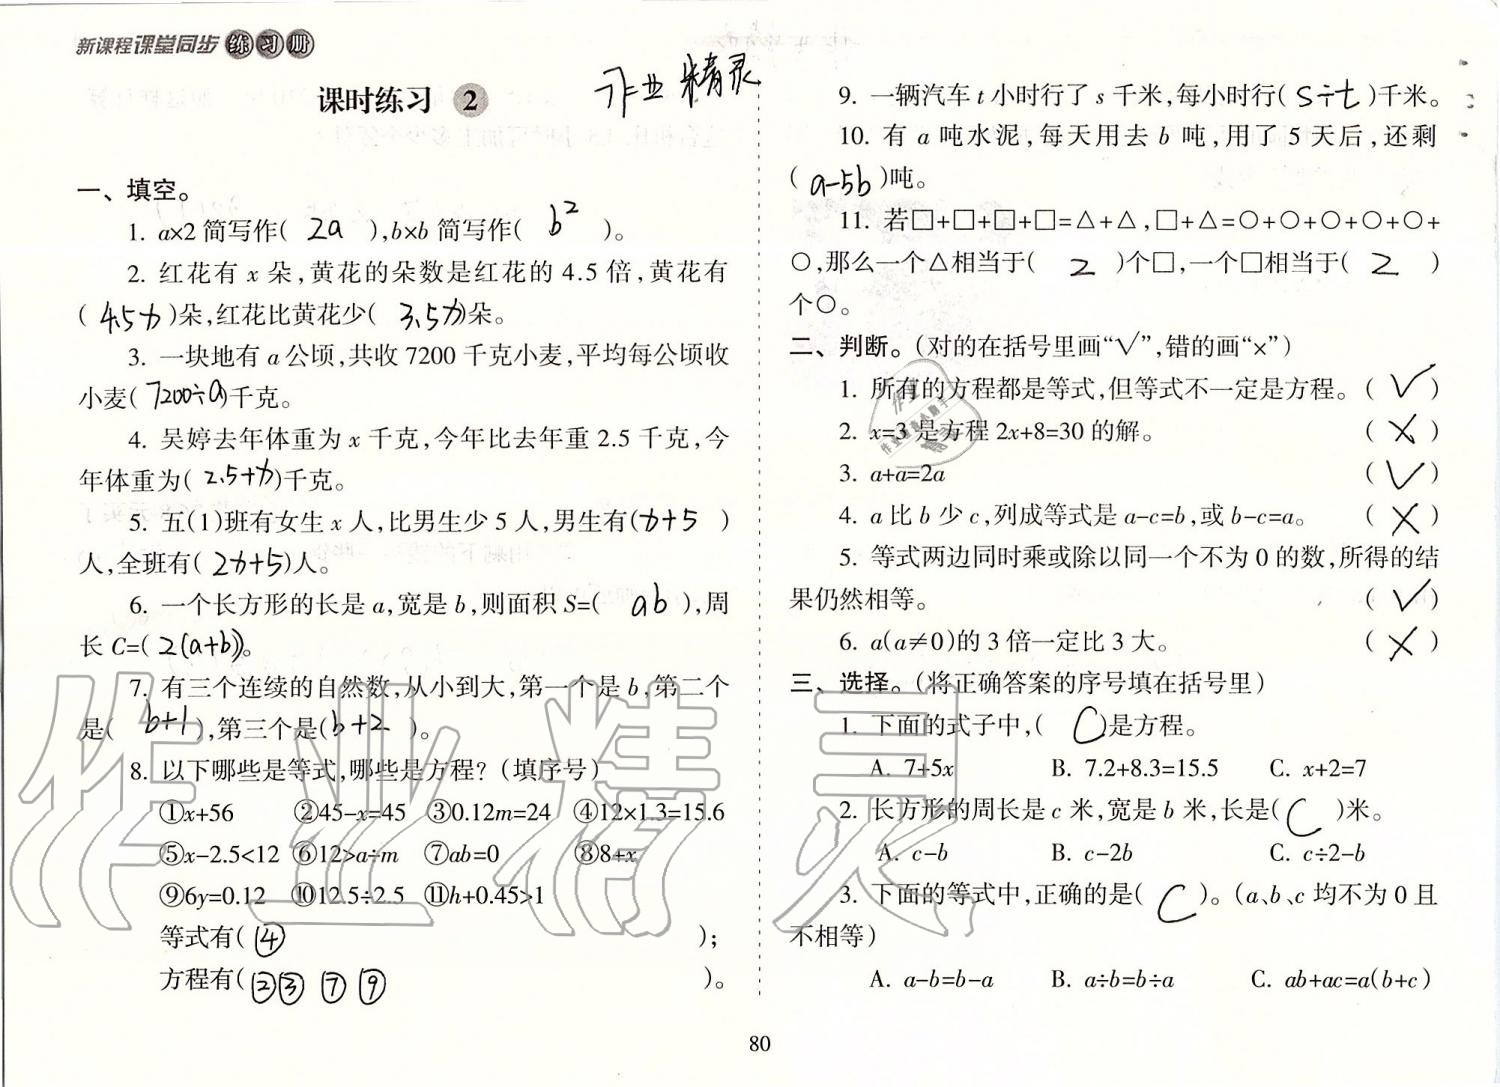 新课程课堂同步练习册
课时练习 2
作业精灵
一、填空。
1. a×2简写作( 2a ),b×b简写作( b² )。
2. 红花有 x 朵,黄花的朵数是红花的 4.5 倍,黄花有
( 4.5x )朵,红花比黄花少( 3.5x )朵。
3. 一块地有 a 公顷,共收 7200 千克小麦,平均每公顷收
小麦( 7200÷a )千克。
4. 吴婷去年体重为 x 千克,今年比去年重 2.5 千克,今
年体重为( 2.5+x )千克。
5. 五(1)班有女生 x 人,比男生少 5 人,男生有( x+5 )
人,全班有( 2x+5 )人。
6. 一个长方形的长是 a,宽是 b,则面积 S=( ab ),周
长 C=( 2(a+b) )。
7. 有三个连续的自然数,从小到大,第一个是 b,第二个
是( b+1 ),第三个是( b+2 )。
8. 以下哪些是等式,哪些是方程?(填序号)
①x+56 ②45-x=45 ③0.12m=24 ④12×1.3=15.6
⑤x-2.5<12 ⑥12>a÷m ⑦ab=0 ⑧8+x
⑨6y=0.12 ⑩12.5÷2.5 ⑪h+0.45>1
等式有( ④ );
方程有( ②③ ⑦ ⑨ )。
9. 一辆汽车 t 小时行了 s 千米,每小时行( s÷t )千米。
10. 有 a 吨水泥,每天用去 b 吨,用了 5 天后,还剩
( a-5b )吨。
11. 若□+□+□+□=△+△,□+△=○+○+○+○+○+
○,那么一个△相当于( 2 )个□,一个□相当于( 2 )
个○。
二、判断。(对的在括号里画“√”,错的画“×”)
1. 所有的方程都是等式,但等式不一定是方程。( √ )
2. x=3 是方程 2x+8=30 的解。 ( × )
3. a+a=2a ( √ )
4. a 比 b 少 c,列成等式是 a-c=b,或 b-c=a。 ( × )
5. 等式两边同时乘或除以同一个不为 0 的数,所得的结
果仍然相等。 ( √ )
6. a(a≠0)的 3 倍一定比 3 大。 ( × )
三、选择。(将正确答案的序号填在括号里)
1. 下面的式子中,( C )是方程。
A. 7+5x B. 7.2+8.3=15.5 C. x+2=7
2. 长方形的周长是 c 米,宽是 b 米,长是( C )米。
A. c-b B. c-2b C. c÷2-b
3. 下面的等式中,正确的是( C )。(a、b、c 均不为 0 且
不相等)
A. a-b=b-a B. a÷b=b÷a C. ab+ac=a(b+c)
作业精灵
80